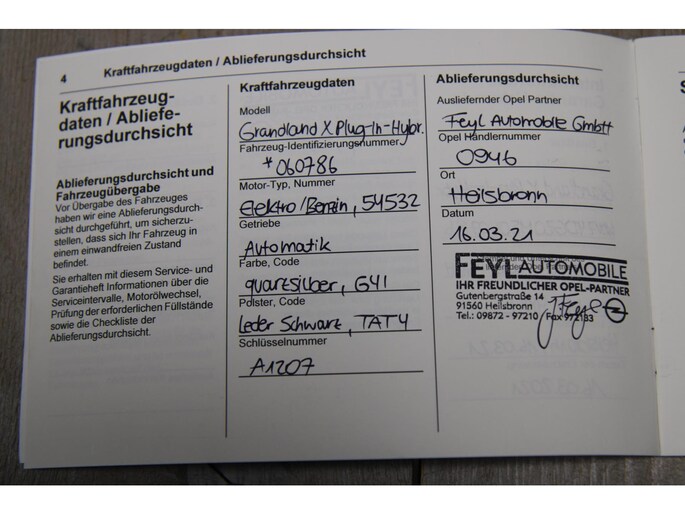 4 Kraftfahrzeugdaten / Ablieferungsdurchsicht
Kraftfahrzeug-
daten / Abliefe-
rungsdurchsicht
Ablieferungsdurchsicht und
Fahrzeugübergabe
Vor Übergabe des Fahrzeuges
haben wir eine Ablieferungsdurch-
sicht durchgeführt, um sicherzu-
stellen, dass sich Ihr Fahrzeug in
einem einwandfreien Zustand
befindet.
Sie erhalten mit diesem Service- und
Garantieheft Informationen über die
Serviceintervalle, Motorölwechsel,
Prüfung der erforderlichen Füllstände
sowie die Checkliste der
Ablieferungsdurchsicht.
Kraftfahrzeugdaten
Modell
Grandland X Plug-In-Hybr.
Fahrzeug-Identifizierungsnummer
*060786
Motor-Typ, Nummer
elektro/Benzin, 54532
Getriebe
Automatik
Farbe, Code
quarzsilber, G4I
Polster, Code
Leder Schwarz, TAT4
Schlüsselnummer
A1207
Ablieferungsdurchsicht
Ausliefernder Opel Partner
Feyl Automobile GmbH
Opel Händlernummer
0946
Ort
Heilsbronn
Datum
16.03.21
FEYL AUTOMOBILE
IHR FREUNDLICHER OPEL-PARTNER
Gutenbergstraße 14
91560 Heilsbronn
Tel.: 09872 - 97210 / Fax 972133